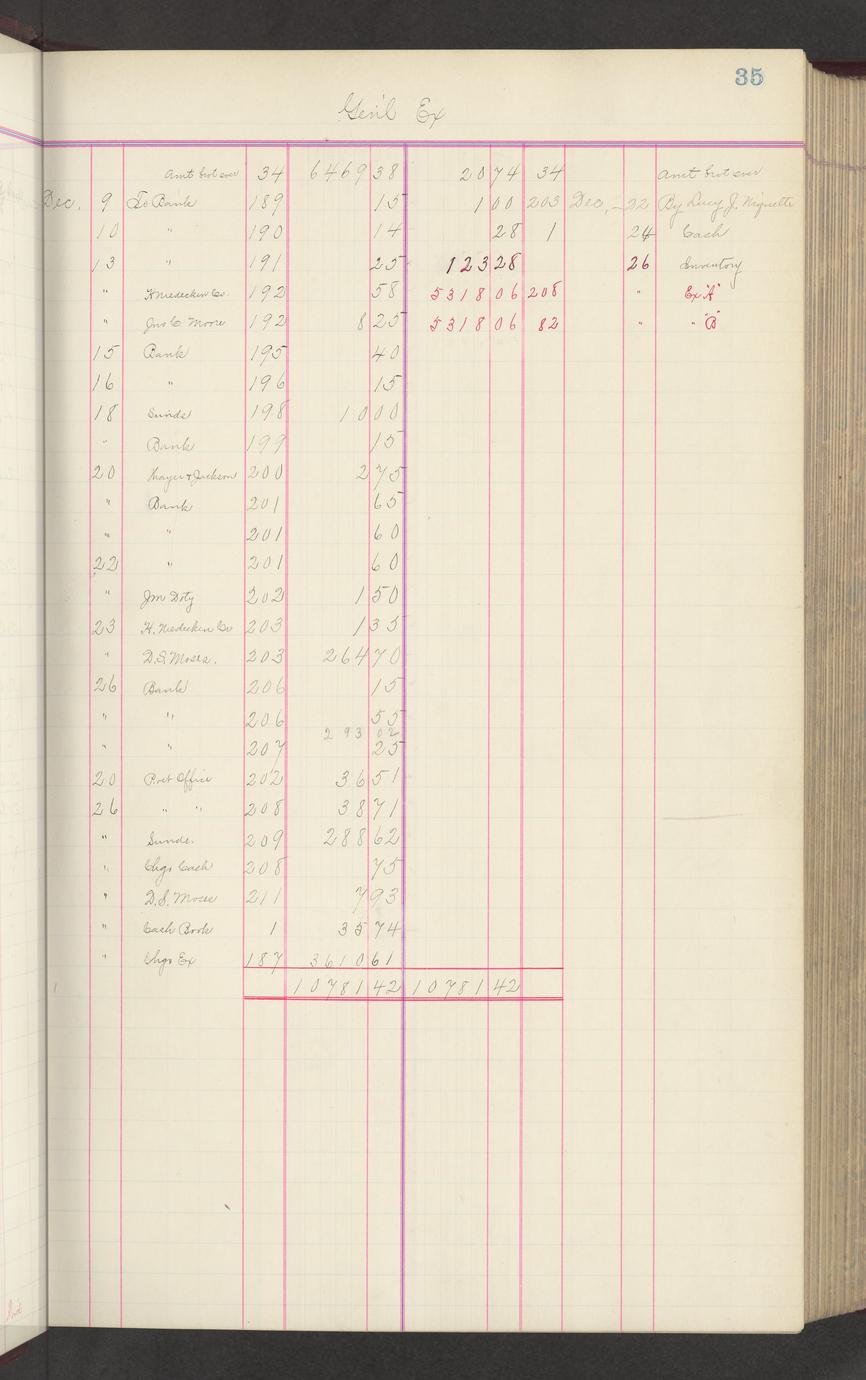 35
Gen'l Ex
Amt brot over 34 6469 38 2074 34 Amt brot over
Dec. 9 To Bank 189 15 1 00 203 Dec. 22 By Lucy J.
10 " 190 14 28 1 24 Cash
13 " 191 25 123 28 26 Inventory
" H Niedecken Co. 192 58 5318 06 208 " Ex "A"
" Jno C. Moore 192 8 25 5318 06 82 " " "B"
15 Bank 195 40
16 " 196 15
18 Sunds 198 10 00
" Bank 199 15
20 Thayer & Jackson 200 2 75
" Bank 201 65
" " 201 60
22 " 201 60
" Jm Doty 202 1 50
23 H. Niedecken Co 203 1 35
" D.S. Moses. 203 264 70
26 Bank 206 15
" " 206 55
293 02
" " 207 25
20 Post Office 202 36 51
26 " " 208 38 71
" Sunds. 209 288 62
" Chgs Cash 208 75
" D.S. Moses 211 7 93
" Cash Book 1 35 74
" Chgs Ex 187 3610 61
10781 42 10781 42